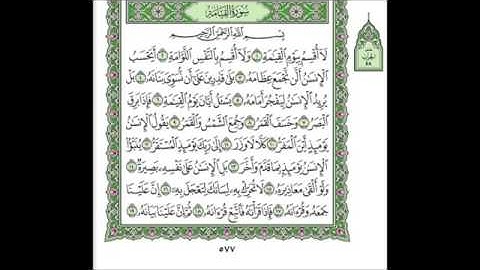 سُورَةُ القِيَامَةِ
بِسْمِ اللَّهِ الرَّحْمَٰنِ الرَّحِيمِ
لَا أُقْسِمُ بِيَوْمِ الْقِيَامَةِ ١ وَلَا أُقْسِمُ بِالنَّفْسِ اللَّوَّامَةِ ٢ أَيَحْسَبُ
الْإِنسَانُ أَلَّن نَّجْمَعَ عِظَامَهُ ٣ بَلَىٰ قَادِرِينَ عَلَىٰ أَن نُّسَوِّيَ بَنَانَهُ ٤ بَلْ
يُرِيدُ الْإِنسَانُ لِيَفْجُرَ أَمَامَهُ ٥ يَسْأَلُ أَيَّانَ يَوْمُ الْقِيَامَةِ ٦ فَإِذَا بَرِقَ
الْبَصَرُ ٧ وَخَسَفَ الْقَمَرُ ٨ وَجُمِعَ الشَّمْسُ وَالْقَمَرُ ٩ يَقُولُ الْإِنسَانُ
يَوْمَئِذٍ أَيْنَ الْمَفَرُّ ١٠ كَلَّا لَا وَزَرَ ١١ إِلَىٰ رَبِّكَ يَوْمَئِذٍ الْمُسْتَقَرُّ ١٢ يُنَبَّأُ
الْإِنسَانُ يَوْمَئِذٍ بِمَا قَدَّمَ وَأَخَّرَ ١٣ بَلِ الْإِنسَانُ عَلَىٰ نَفْسِهِ بَصِيرَةٌ ١٤
وَلَوْ أَلْقَىٰ مَعَاذِيرَهُ ١٥ لَا تُحَرِّكْ بِهِ لِسَانَكَ لِتَعْجَلَ بِهِ ١٦ إِنَّ عَلَيْنَا
جَمْعَهُ وَقُرْآنَهُ ١٧ فَإِذَا قَرَأْنَاهُ فَاتَّبِعْ قُرْآنَهُ ١٨ ثُمَّ إِنَّ عَلَيْنَا بَيَانَهُ ١٩
٥٧٧